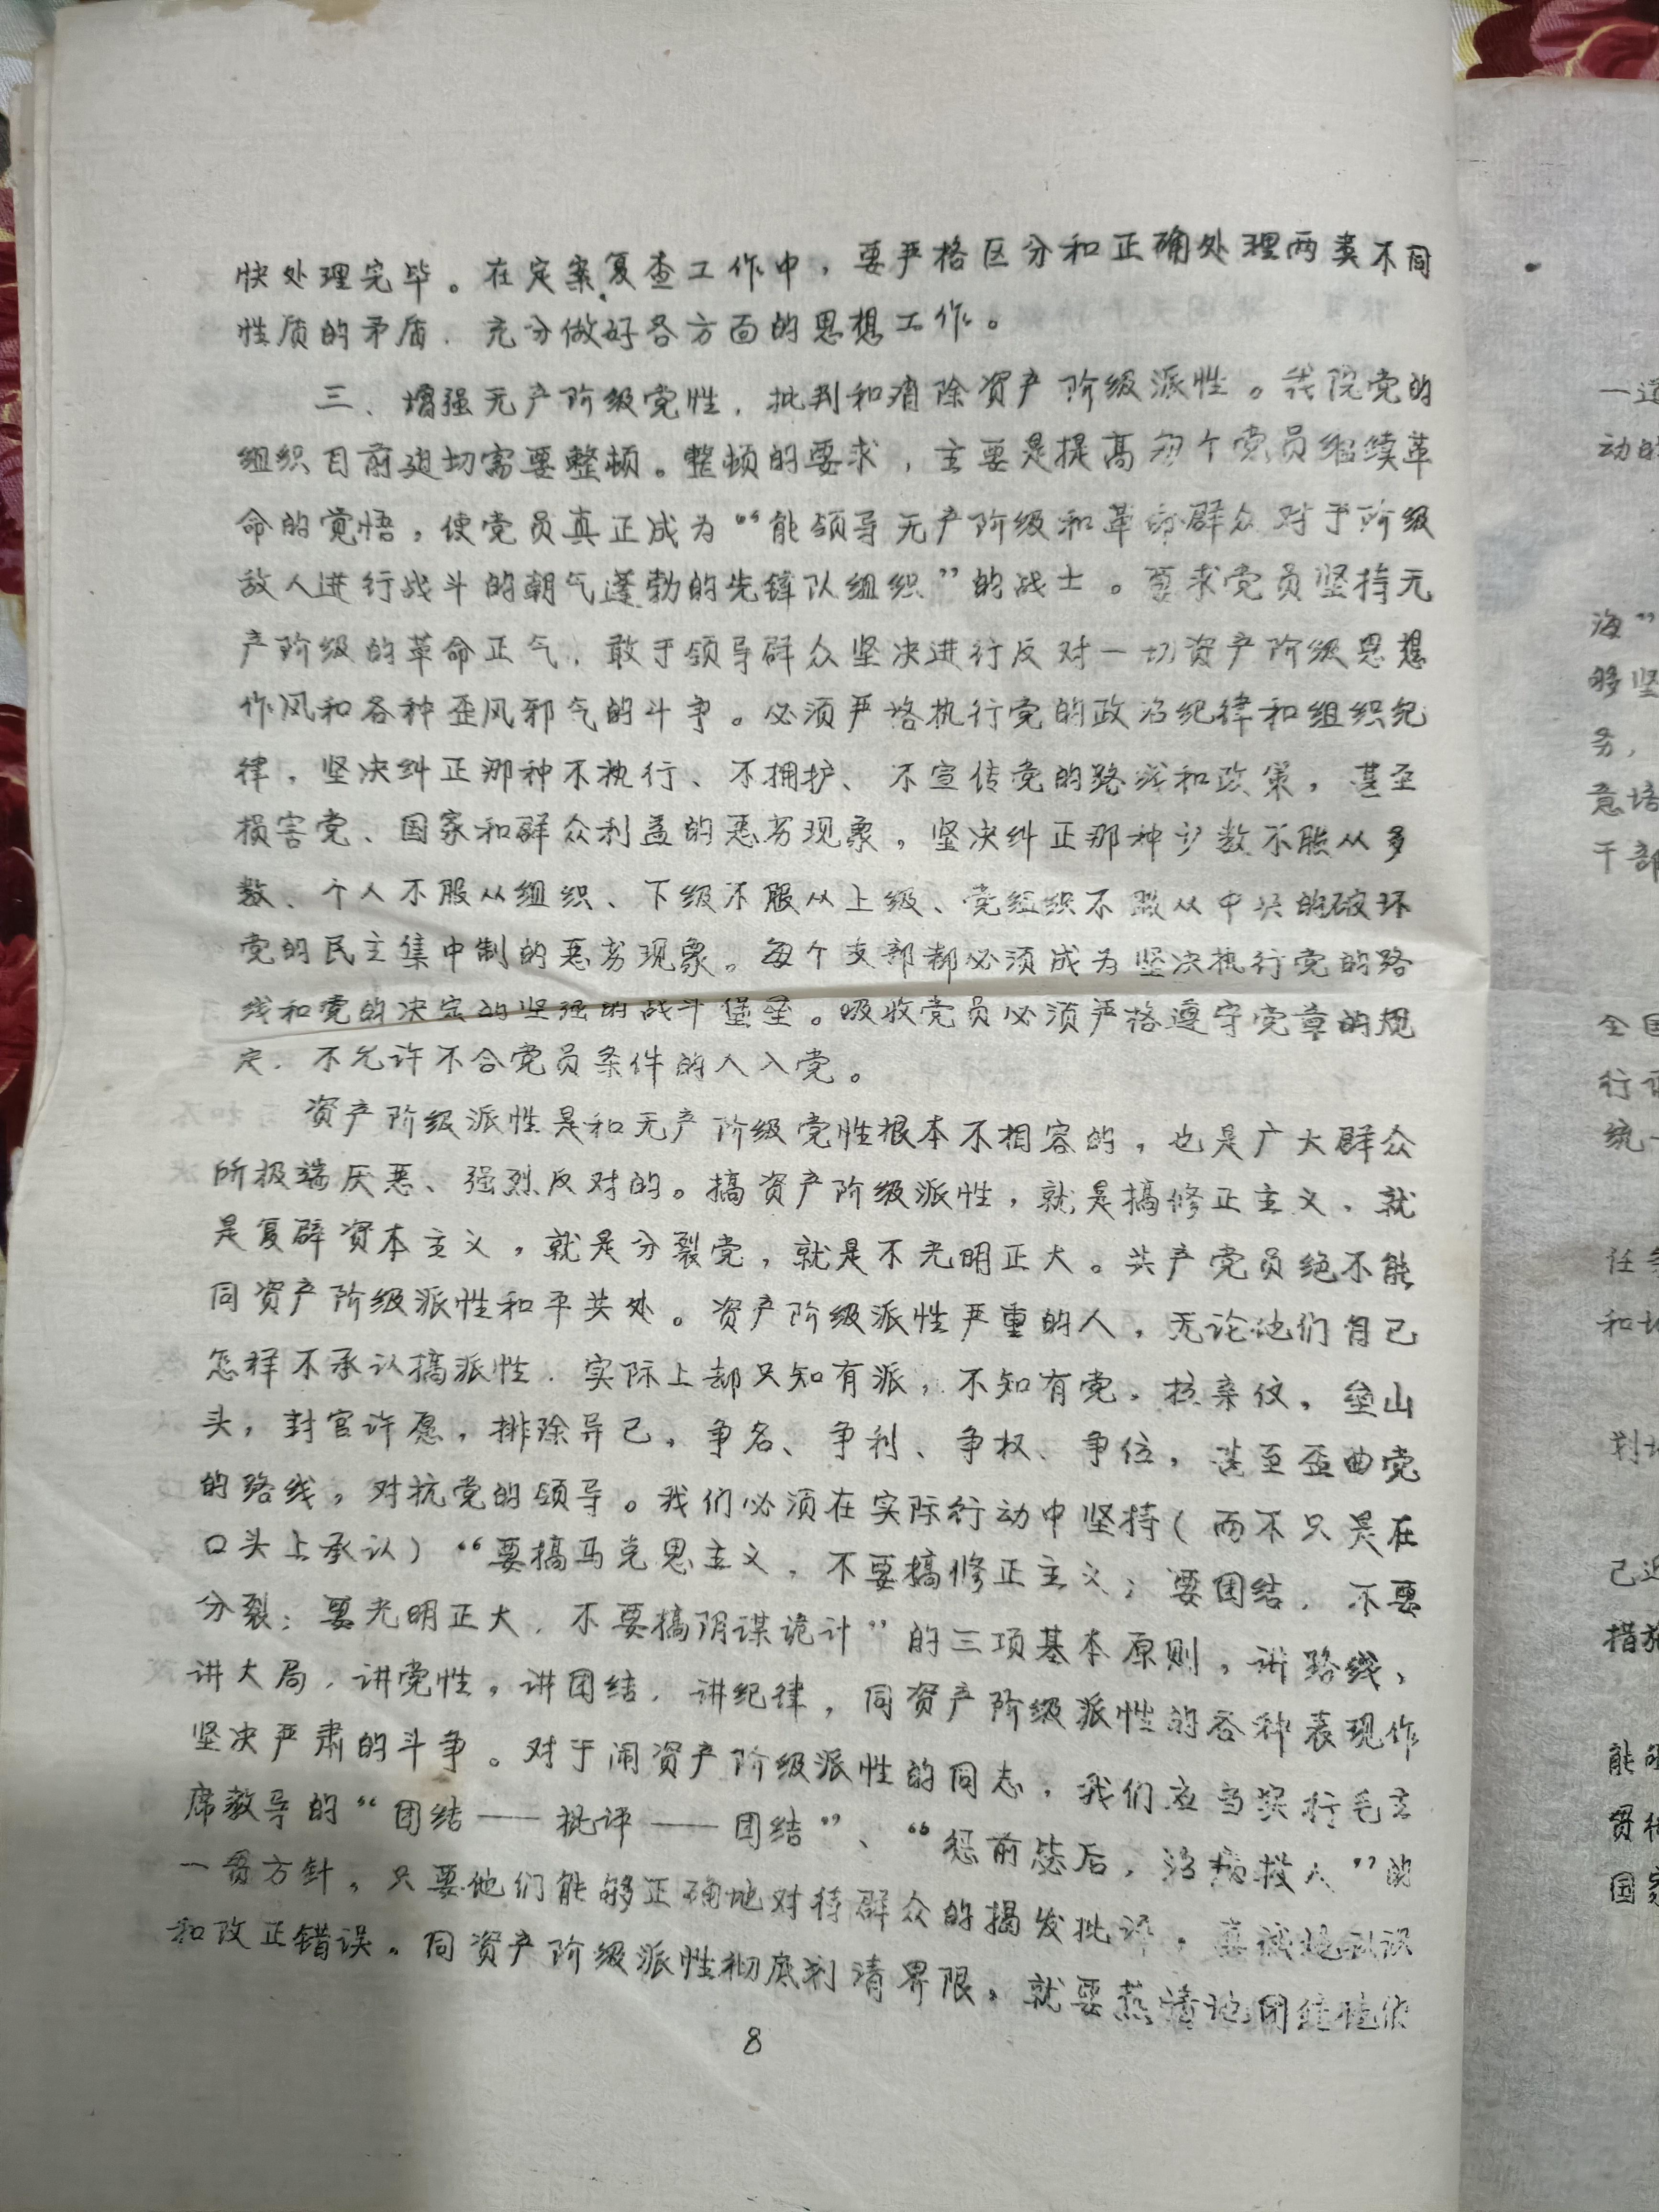 快处理完毕。在定案复查工作中，要严格区分和正确处理两类不同
性质的矛盾，充分做好各方面的思想工作。
三、增强无产阶级党性，批判和消除资产阶级派性。我院党的
组织目前迫切需要整顿。整顿的要求，主要是提高每个党员继续革
命的觉悟，使党员真正成为“能领导无产阶级和革命群众对于阶级
敌人进行战斗的朝气蓬勃的先锋队组织”的战士。要求党员坚持无
产阶级的革命正气，敢于领导群众坚决进行反对一切资产阶级思想
作风和各种歪风邪气的斗争。必须严格执行党的政治纪律和组织纪
律，坚决纠正那种不执行、不拥护、不宣传党的路线和政策，甚至
损害党、国家和群众利益的恶劣现象，坚决纠正那种少数不服从多
数、个人不服从组织、下级不服从上级、党组织不服从中央的破坏
党的民主集中制的恶劣现象。每个支部都必须成为坚决执行党的路
线和党的决定的坚强的战斗堡垒。吸收党员必须严格遵守党章的规
定，不允许不合党员条件的人入党。
资产阶级派性是和无产阶级党性根本不相容的，也是广大群众
所极端厌恶、强烈反对的。搞资产阶级派性，就是搞修正主义，就
是复辟资本主义，就是分裂党，就是不光明正大。共产党员绝不能
同资产阶级派性和平共处。资产阶级派性严重的人，无论他们自己
怎样不承认搞派性，实际上却只知有派，不知有党，拉亲仗，垒山
头，封官许愿，排除异己，争名、争利、争权、争位，甚至歪曲党
的路线，对抗党的领导。我们必须在实际行动中坚持（而不只是在
口头上承认）“要搞马克思主义，不要搞修正主义；要团结，不要
分裂；要光明正大，不要搞阴谋诡计”的三项基本原则，讲路线，
讲大局，讲党性，讲团结，讲纪律，同资产阶级派性的各种表现作
坚决严肃的斗争。对于闹资产阶级派性的同志，我们应当实行毛主
席教导的“团结——批评——团结”、“惩前毖后，治病救人”的
一贯方针。只要他们能够正确地对待群众的揭发批评，真诚地认识
和改正错误，同资产阶级派性彻底划清界限，就要热情地团结他们
8
一道
动的
海”
够坚
务，
意培
干部
全国
行
统一
任务
和
划
己近
措施
能够
贯
国家